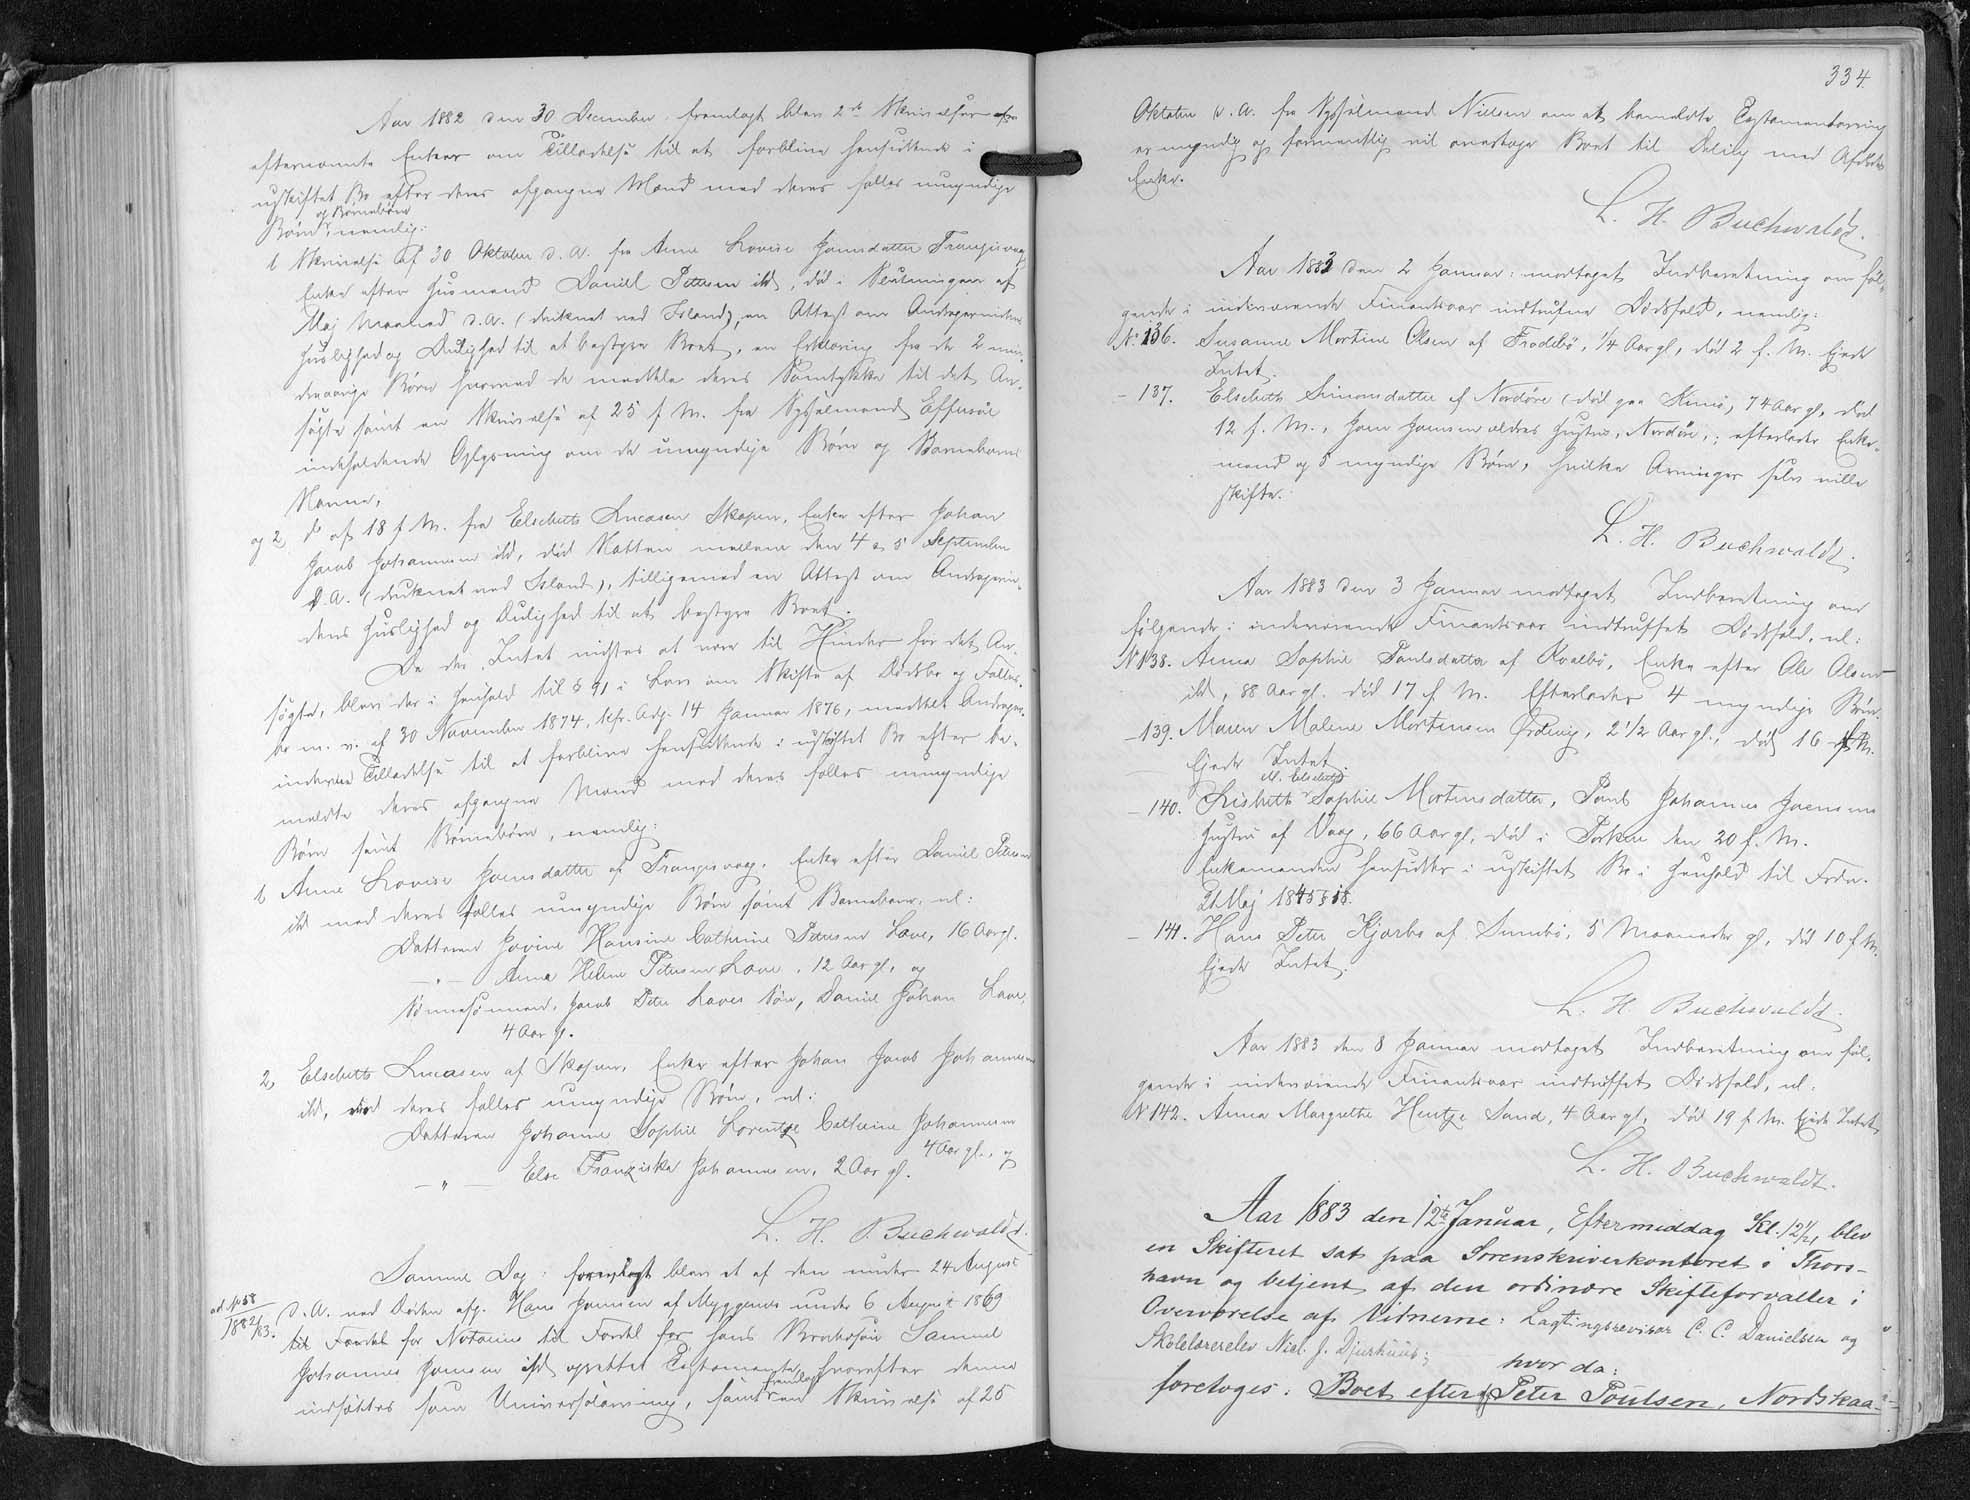 Aar 1882 den 30 December, fremlagt blev 2de Skrivelser fra
efternævnte Enker om Tilladelse til at forblive hensiddende i
uskiftet Bo efter deres afgangne Mænd med deres fælles umyndige
Børn og Børnebørn, nemlig:
1, Skrivelse af 30 Oktober d. A. fra Anne Lovise Joensdatter Trangisvaag
Enke efter Husmand Daniel Petersen ibd, død i Slutningen af
Maj Maaned d. A. (druknet ved Island), en Attest om Andragerindens
Huslighed og Dulighed til at bestyre Boet, en Erklæring fra de 2 min-
dreaarige Børn hvorved de meddele deres Samtykke til det An-
søgte samt en Skrivelse af 25 f. M. fra Sysselmand Effersøe
indeholdende Oplysning om de umyndige Børn og Barnebarns
Navne,
og 2, do af 18 f. M. fra Elsebeth Lucasen Skopen, Enke efter Johan
Jacob Johannesen ibd, død Natten mellem den 4 o 5 September
d. A. (druknet ved Island), tilligemed en Attest om Andragerin-
dens Huslighed og Dulighed til at bestyre Boet.
Da der Intet vidstes at være til Hinder for det An-
søgte, blev der i Henhold til § 91 i Lov om Skifte af Dødsbo og Fælles-
bo m. v. af 30 November 1874, kfr. Adg. 14 Januar 1876, meddelt Andrager-
inderne Tilladelse til at forblive hensiddende i uskiftet Bo efter be-
meldte deres afgangne Mænd med deres fælles umyndige
Børn samt Børnebørn, nemlig:
1, Anne Lovise Joensdatter af Trangisvaag, Enke efter Daniel Petersen
ibd med deres fælles umyndige Børn samt Barnebarn, nl:
Datteren Jovine Hansine Cathrine Petersen Lave, 16 Aar gl.
— " — Anna Helene Petersen Lave, 12 Aar gl, og
Sønnesønnen, Jacob Peter Laves Søn, Daniel Johan Lave,
4 Aar gl.
2, Elsebeth Lucasen af Skopen, Enke efter Johan Jacob Johannesen
ibd, med deres fælles umyndige Børn, nl:
Datteren Johanne Sophie Lorentze Cathrine Johannesen
4 Aar gl., og
— " — Else Franziska Johannesen, 2 Aar gl.
L. H. Buchwaldt.
Samme Dag: fremlagt blev et af den under 24 August
ad No 58
1882/83.
d. A. ved Døden afg. Hans Joensen af Myggenæs under 6 August 1869
til Fordel for Notarius til Fordel for hans Brodersøn Samuel
Johannes Joensen ibd oprettet Testamente, hvorefter denne
indsættes som Universalarving, samt fremlagt en Skrivelse af 25
334.
Oktober d. A. fra Sysselmand Nielsen om at bemeldte Testamentarving
er myndig og formentlig vil overtage Boet til Deling med Afdødes
Enke.
L. H. Buchwaldt.
Aar 1883 den 2 Januar: modtaget Indberetning om føl-
gende i indeværende Finantsaar indtrufne Dødsfald, nemlig:
No 136. Susanne Mortine Olsen af Frodebø, 1/4 Aar gl, død 2 f. M. Ejede
Intet.
— 137. Elsebeth Simonsdatter af Nordøre (død paa Kunø, 74 Aar gl, død
12 f. M., Joen Joensen ældres Hustru, Nordøre,; efterlader Enke-
mand og 5 myndige Børn, hvilke Arvinger selv ville
skifte.
L. H. Buchwaldt.
Aar 1883 den 3 Januar modtaget Indberetning om
følgende i indeværende Finantsaar indtruffet Dødsfald, nl:
No 138. Anna Sophie Poulsdatter af Kvalbø, Enke efter Ole Olsen
ibd, 88 Aar gl. død 17 f. M. Efterlader 4 myndige Børn.
— 139. Maren Malene Mortensen Ørdevig, 2 1/2 Aar gl., død 16 f. M.
Ejede Intet.
— 140. Lisbeth al. Elsebeth Sophie Mortensdatter, Poul Johannes Joensens
Hustru af Vaag, 66 Aar gl, død i Porkeri den 20 f. M.
Enkemanden hensidder i uskiftet Bo i Henhold til Frdn.
21 Maj 1845 § 18.
— 141. Hans Peter Kjærbo af Sumbø, 5 Maaneder gl, død 10 f. M.
Ejede Intet.
L. H. Buchwaldt.
Aar 1883 den 8 Januar modtaget Indberetning om føl-
gende i indeværende Finantsaar indtruffet Dødsfald, nl.
No 142. Anna Margrethe Hentze Sand, 4 Aar gl, død 19 f. M. Ejede Intet.
L. H. Buchwaldt.
Aar 1883 den 12te Januar, Eftermiddag Kl. 12 1/2, blev
en Skifteret sat paa Sorenskriverkontoret i Thors-
havn og betjent af den ordinære Skifteforvalter i
Overværelse af Vitnerne: Lagtingsrevisor C. C. Danielsen og
Skolelærerelev Niel. J. Djurhuus; hvor da:
foretoges: Boet efter Peter Poulsen, Nordskaa-